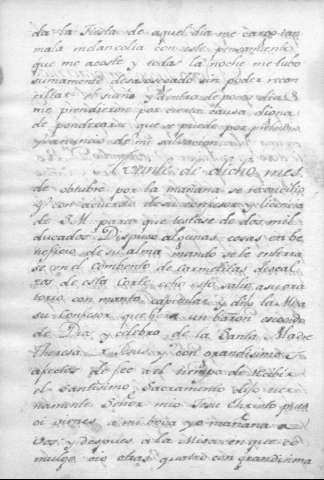 da la fiesta de aquel dia me cargo tan
mala melancolia con este pensamiento
que me acoste y todas la noche me tubo
sumamente desasosegado sin poder recon
ciliar el sueño y dentro de pocos dias
me prendieron por cierta causa digna
de ponderarse que se puede por publicar
de mi salvacion
Veinte de dicho mes
de octubre por la mañana se reconcilio
y con acuerdo de su confesor y licencia
de S.M. para que testase de dos mil
ducados Dispuso algunas cosas en be
neficio de su alma mando se le enterra
se en el combento de carmelitas descal
zos de esta Corte esto salio a su ora
torio con manto capitular y dijo la Misa
su Confesor que era un baron
de Dia y celebro de la Santa Madre
Theresa de Jesus y con grandisimos
afectos de fee a el tiempo de recibir
el Santisimo Sacramento dijo tier
namente Señor mio Jesu Christo pues
os venis a mi oy yo mañana a
vos y despues a la Misa en que co
mulgo oio otras quatro con grandisima